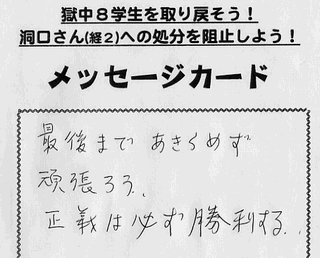 獄中8学生を取り戻そう！
洞口さん(経2)への処分を阻止しよう！
メッセージカード
最後まであきらめず
頑張ろう、
正義は必ず勝利する。